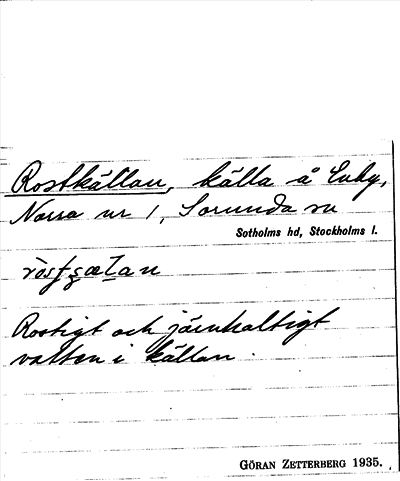 Rostkällan, källa å Enby,
Norra nr 1, Sorunda sn
Sotholms hd, Stockholms l.
Rostigt och järnhaltigt
vatten i källan.
GÖRAN ZETTERBERG 1935.